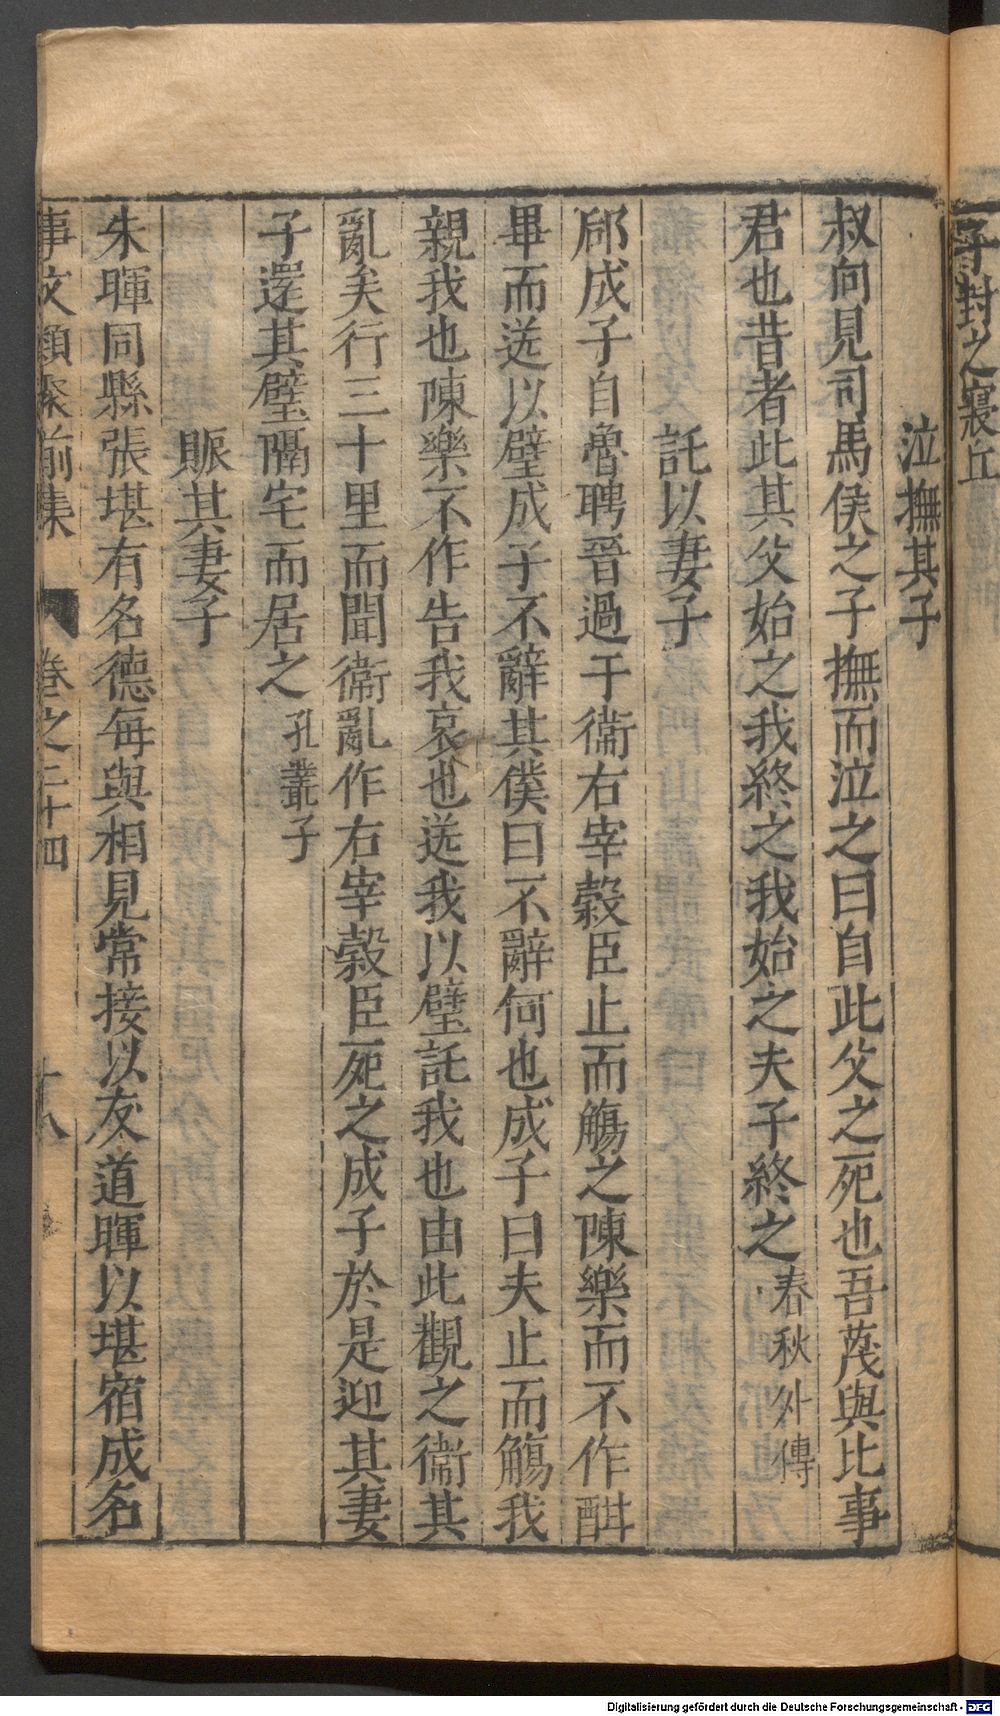 子封之寢丘
泣撫其子
叔向見司馬侯之子撫而泣之曰自此父之死也吾蔑與比事
君也昔者此其父始之我終之我始之夫子終之春秋外傳
託以妻子
郈成子自魯聘晉過于衞右宰榖臣止而觴之陳樂而不作酣
畢而送以璧成子不辭其僕曰不辭何也成子曰夫止而觴我
親我也陳樂不作告我哀也送我以璧託我也由此觀之衞其
亂矣行三十里而聞衞亂作右宰榖臣死之成子於是迎其妻
子還其璧隔宅而居之孔叢子
賑其妻子
朱暉同縣張堪有名德每與相見常接以友道暉以堪宿成名
事文類聚前集 卷之二十四 十八
Digitalisierung gefördert durch die Deutsche Forschungsgemeinschaft - DFG